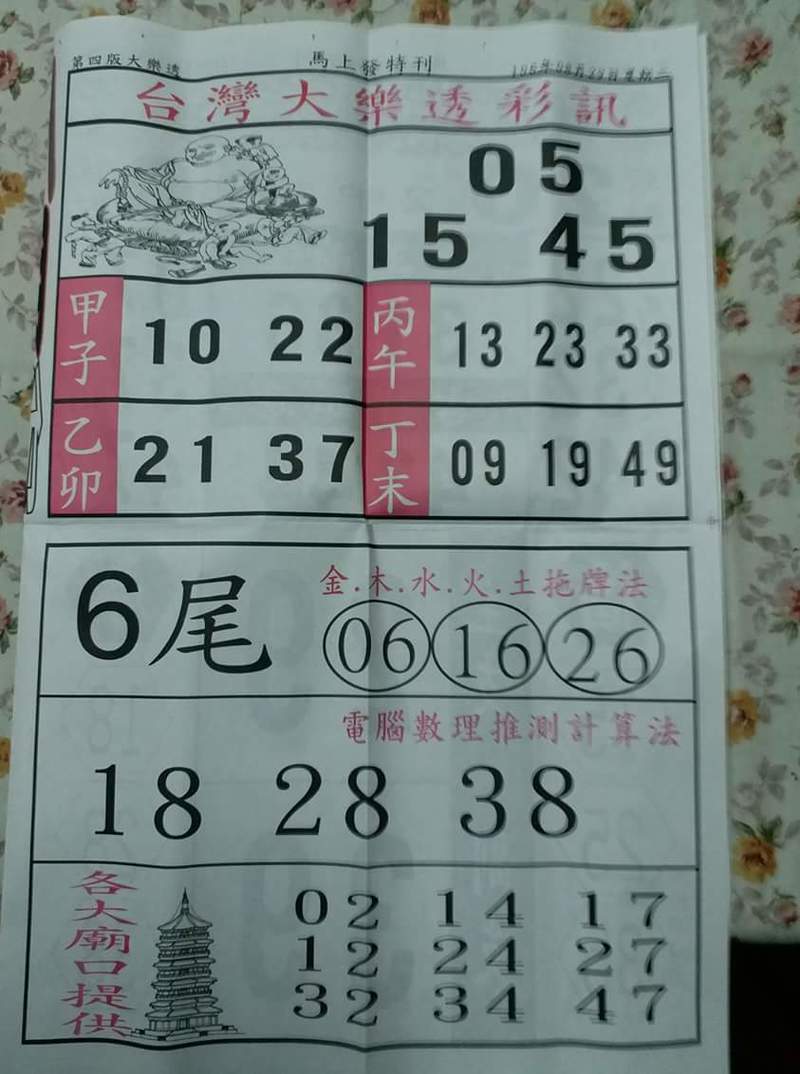 第四版大樂透
馬上發特刊
台灣大樂透彩訊
05
15 45
甲子 10 22
丙午 13 23 33
乙卯 21 37
丁末 09 19 49
6尾
金.木.水.火.土拖牌法
06 16 26
電腦數理推測計算法
18 28 38
各大廟口提供
02 14 17
12 24 27
32 34 47